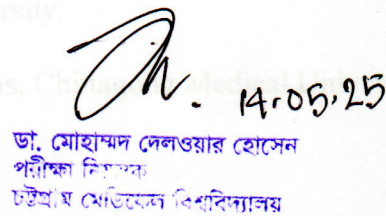 14.05.25
ডা. মোহাম্মদ দেলওয়ার হোসেন
পরীক্ষা নিয়ন্ত্রক
চট্টগ্রাম মেডিকেল বিশ্ববিদ্যালয়